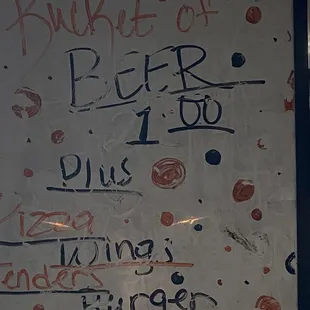 Bucket of
BEER
1 00
Plus
Pizza
Wings
Tenders
Burger